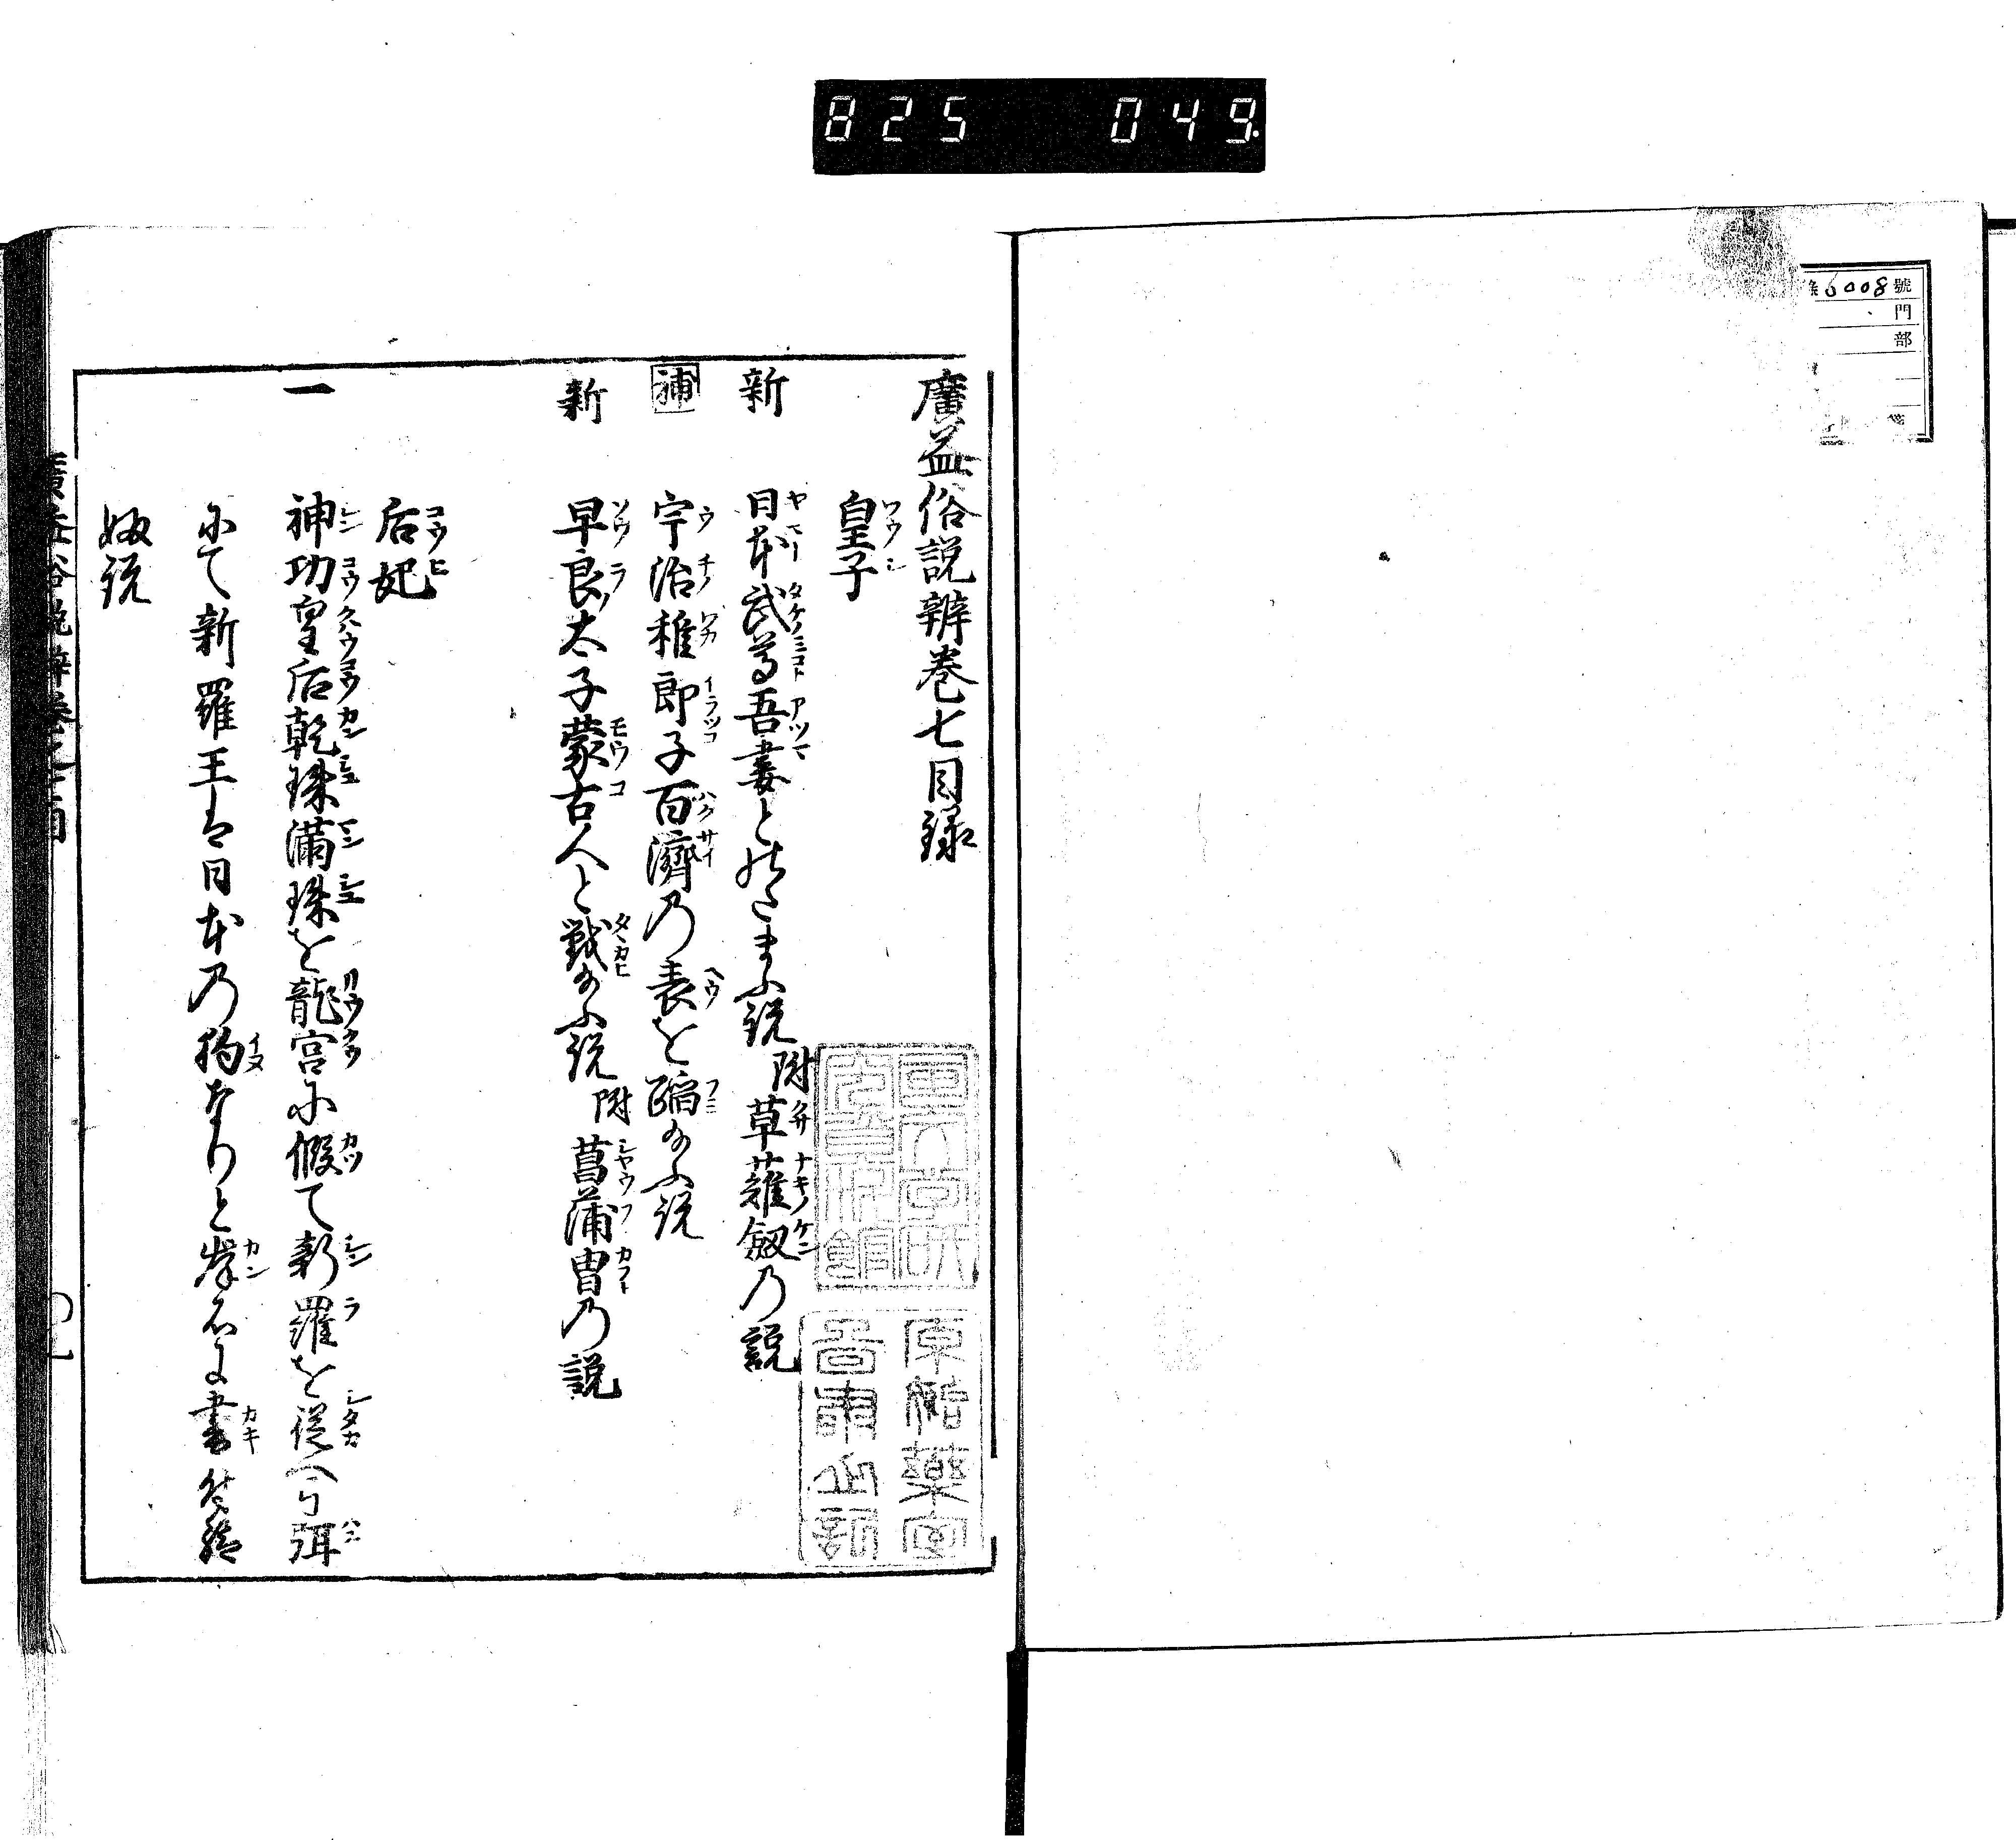 825 049
6008 號
門
部
廣益俗説辨巻七目録
皇子
新 日本武尊吾妻とのたまふ説 附草薙劔乃説
補 宇治稚郎子百濟乃表を蹈給ふ説
新 早良太子蒙古人と戦給ふ説 附菖蒲冑乃説
后妃
一 神功皇后乾珠満珠を龍宮に假て新羅を従へ弓弭
にて新羅王は日本乃狗なりと岸石に書付給
ふ説